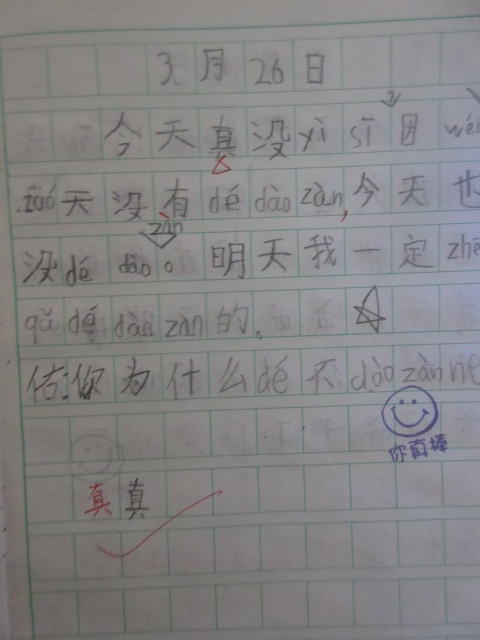 3月26日
今天真没yì sī因wéi
zuó天没有dé dào zàn,今天也
zàn
没dé dào。明天我一定zhē
qǔ dé dào zàn的。
佑:你为什么dé不dào zàn ne
你真棒
真真